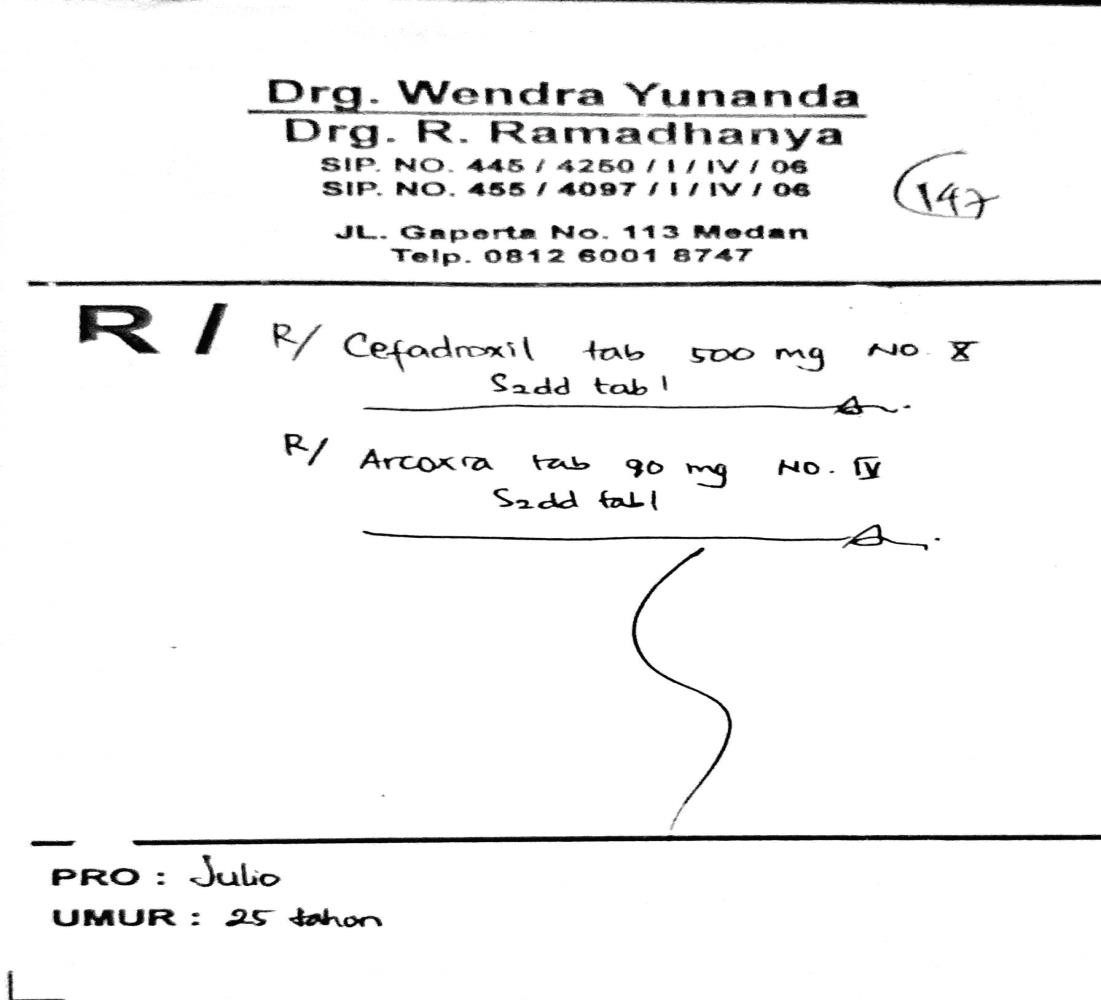 Drg. Wendra Yunanda
Drg. R. Ramadhanya
SIP. NO. 445 / 4250 / I / IV / 06
SIP. NO. 455 / 4097 / I / IV / 06
147
JL. Gaperta No. 113 Medan
Telp. 0812 6001 8747
R / R/ Cefadroxil tab 500 mg NO. X
S2dd tab 1
R/ Arcoxia tab 90 mg NO. IV
S2dd tab 1
PRO : Julio
UMUR : 25 tahun